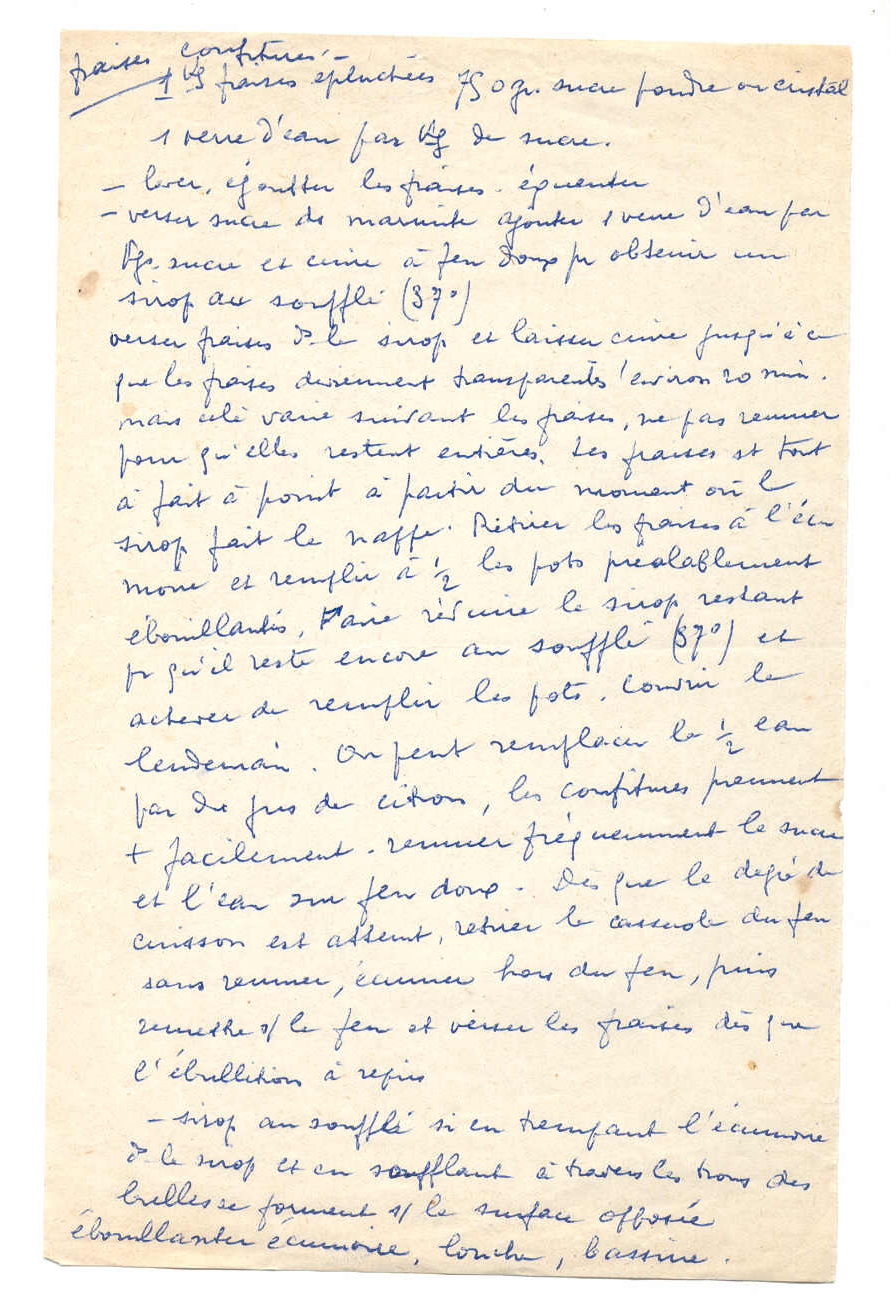 fraises confitures. -
1 kg fraises épluchées 750 gr. sucre poudre ou cristal
1 verre d'eau par kg de sucre.
- laver, égoutter les fraises. équeuter
- verser sucre ds marmite ajouter 1 verre d'eau par
kgr. sucre et cuire à feu doux pr obtenir un
sirop au soufflé (37°)
verser fraises ds le sirop et laisser cuire jusqu'à ce
que les fraises deviennent transparentes environ 20 min.
mais cela varie suivant les fraises, ne pas remuer
pour qu'elles restent entières. Les fraises st tout
à fait à point à partir du moment où le
sirop fait la nappe. Retirer les fraises à l'écu
moire et remplir à 1/2 les pots préalablement
ébouillantés, Faire réduire le sirop restant
pr qu'il reste encore au soufflé (37°) et
achever de remplir les pots. Couvrir le
lendemain. On peut remplacer la 1/2 eau
par du jus de citron, les confitures prennent
+ facilement. remuer fréquemment le sucre
et l'eau sur feu doux. Dès que le degré de
cuisson est atteint, retirer la casserole du feu
sans remuer, écumer hors du feu, puis
remettre s/ le feu et verser les fraises dès que
l'ébullition à repris
- sirop au soufflé si en trempant l'écumoire
ds le sirop et en soufflant à travers les trous des
bulles se forment s/ la surface opposée
ébouillanter écumoire, louche, bassine.